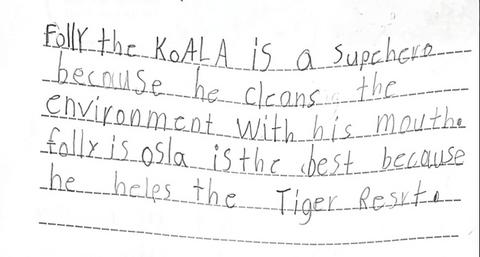 Folly the KOALA is a Supehero
because he cleans the
environment with his mouth.
folly is osla is the best because
he heles the Tiger Resrt.